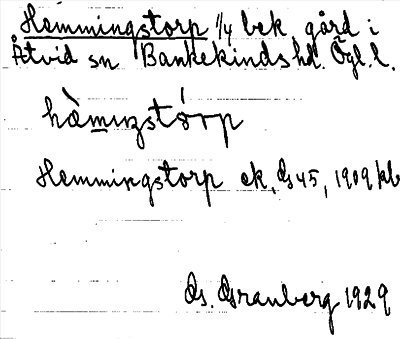 Hemmingstorp 1/4 bek. gård i
Åtvid sn Bankekinds hd. Ögl. l.
hä̀mıŋstórp
Hemmingstorp ek, Gs 45, 1909 kb
Gs. Granberg 1929